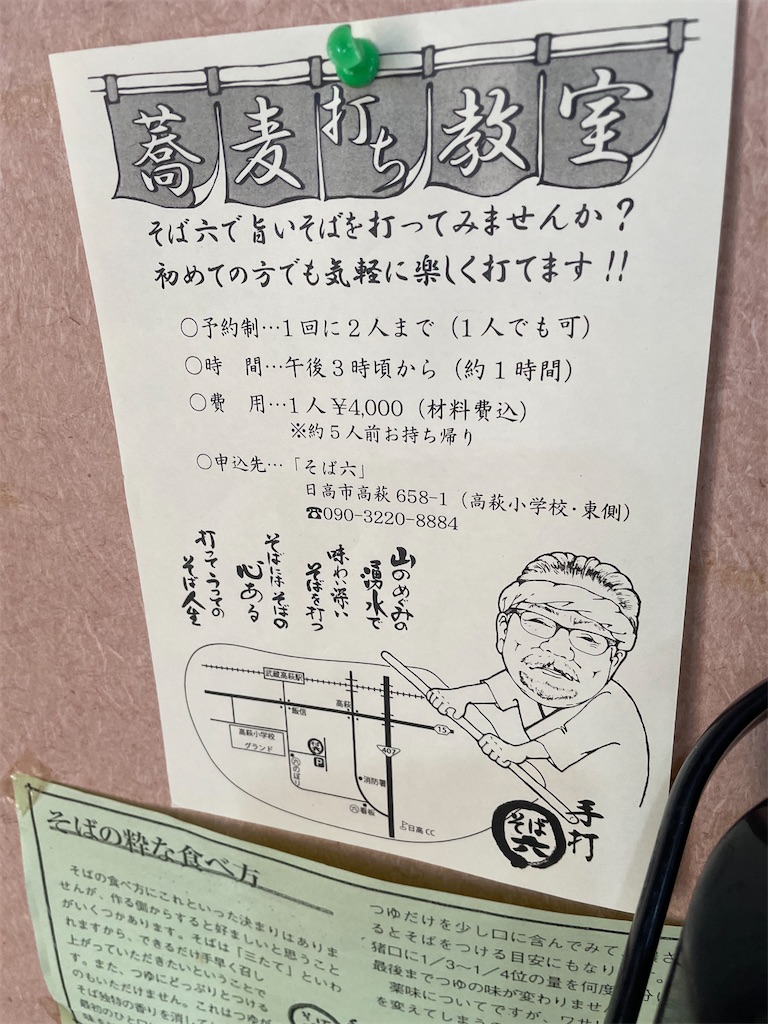 蕎麦打ち教室
そば六で旨いそばを打ってみませんか？
初めての方でも気軽に楽しく打てます!!
○予約制…1回に2人まで（1人でも可）
○時　間…午後3時頃から（約1時間）
○費　用…1人¥4,000（材料費込）
※約5人前お持ち帰り
○申込先…「そば六」
日高市高萩 658-1（高萩小学校・東側）
☎090-3220-8884
山のめぐみの
湧水で
味わい深い
そばを打つ
そばにはそばの
心ある
打ってうっての
そば人生
武蔵高萩駅
飯信
高萩
15
407
高萩小学校
グランド
そば六
P
六のぼり
消防署
六看板
日高CC
手打
そば六
そばの粋な食べ方
そばの食べ方にこれといった決まりはありま
せんが、作る側からすると好ましいと思うこと
がいくつかあります。そばは「三たて」といわ
れますから、できるだけ手早く召し
上がっていただきたいということで
す。また、つゆにどっぷりとつける
のもいただけません。これはつゆが
そば独特の香りを消してし
最初のひと口
つゆだけを少し口に含んでみて
るとそばをつける目安にもなり
猪口に1/3～1/4位の量を何度
最後までつゆの味が変わりません
薬味についてですが、ワサ
を変えてしまう